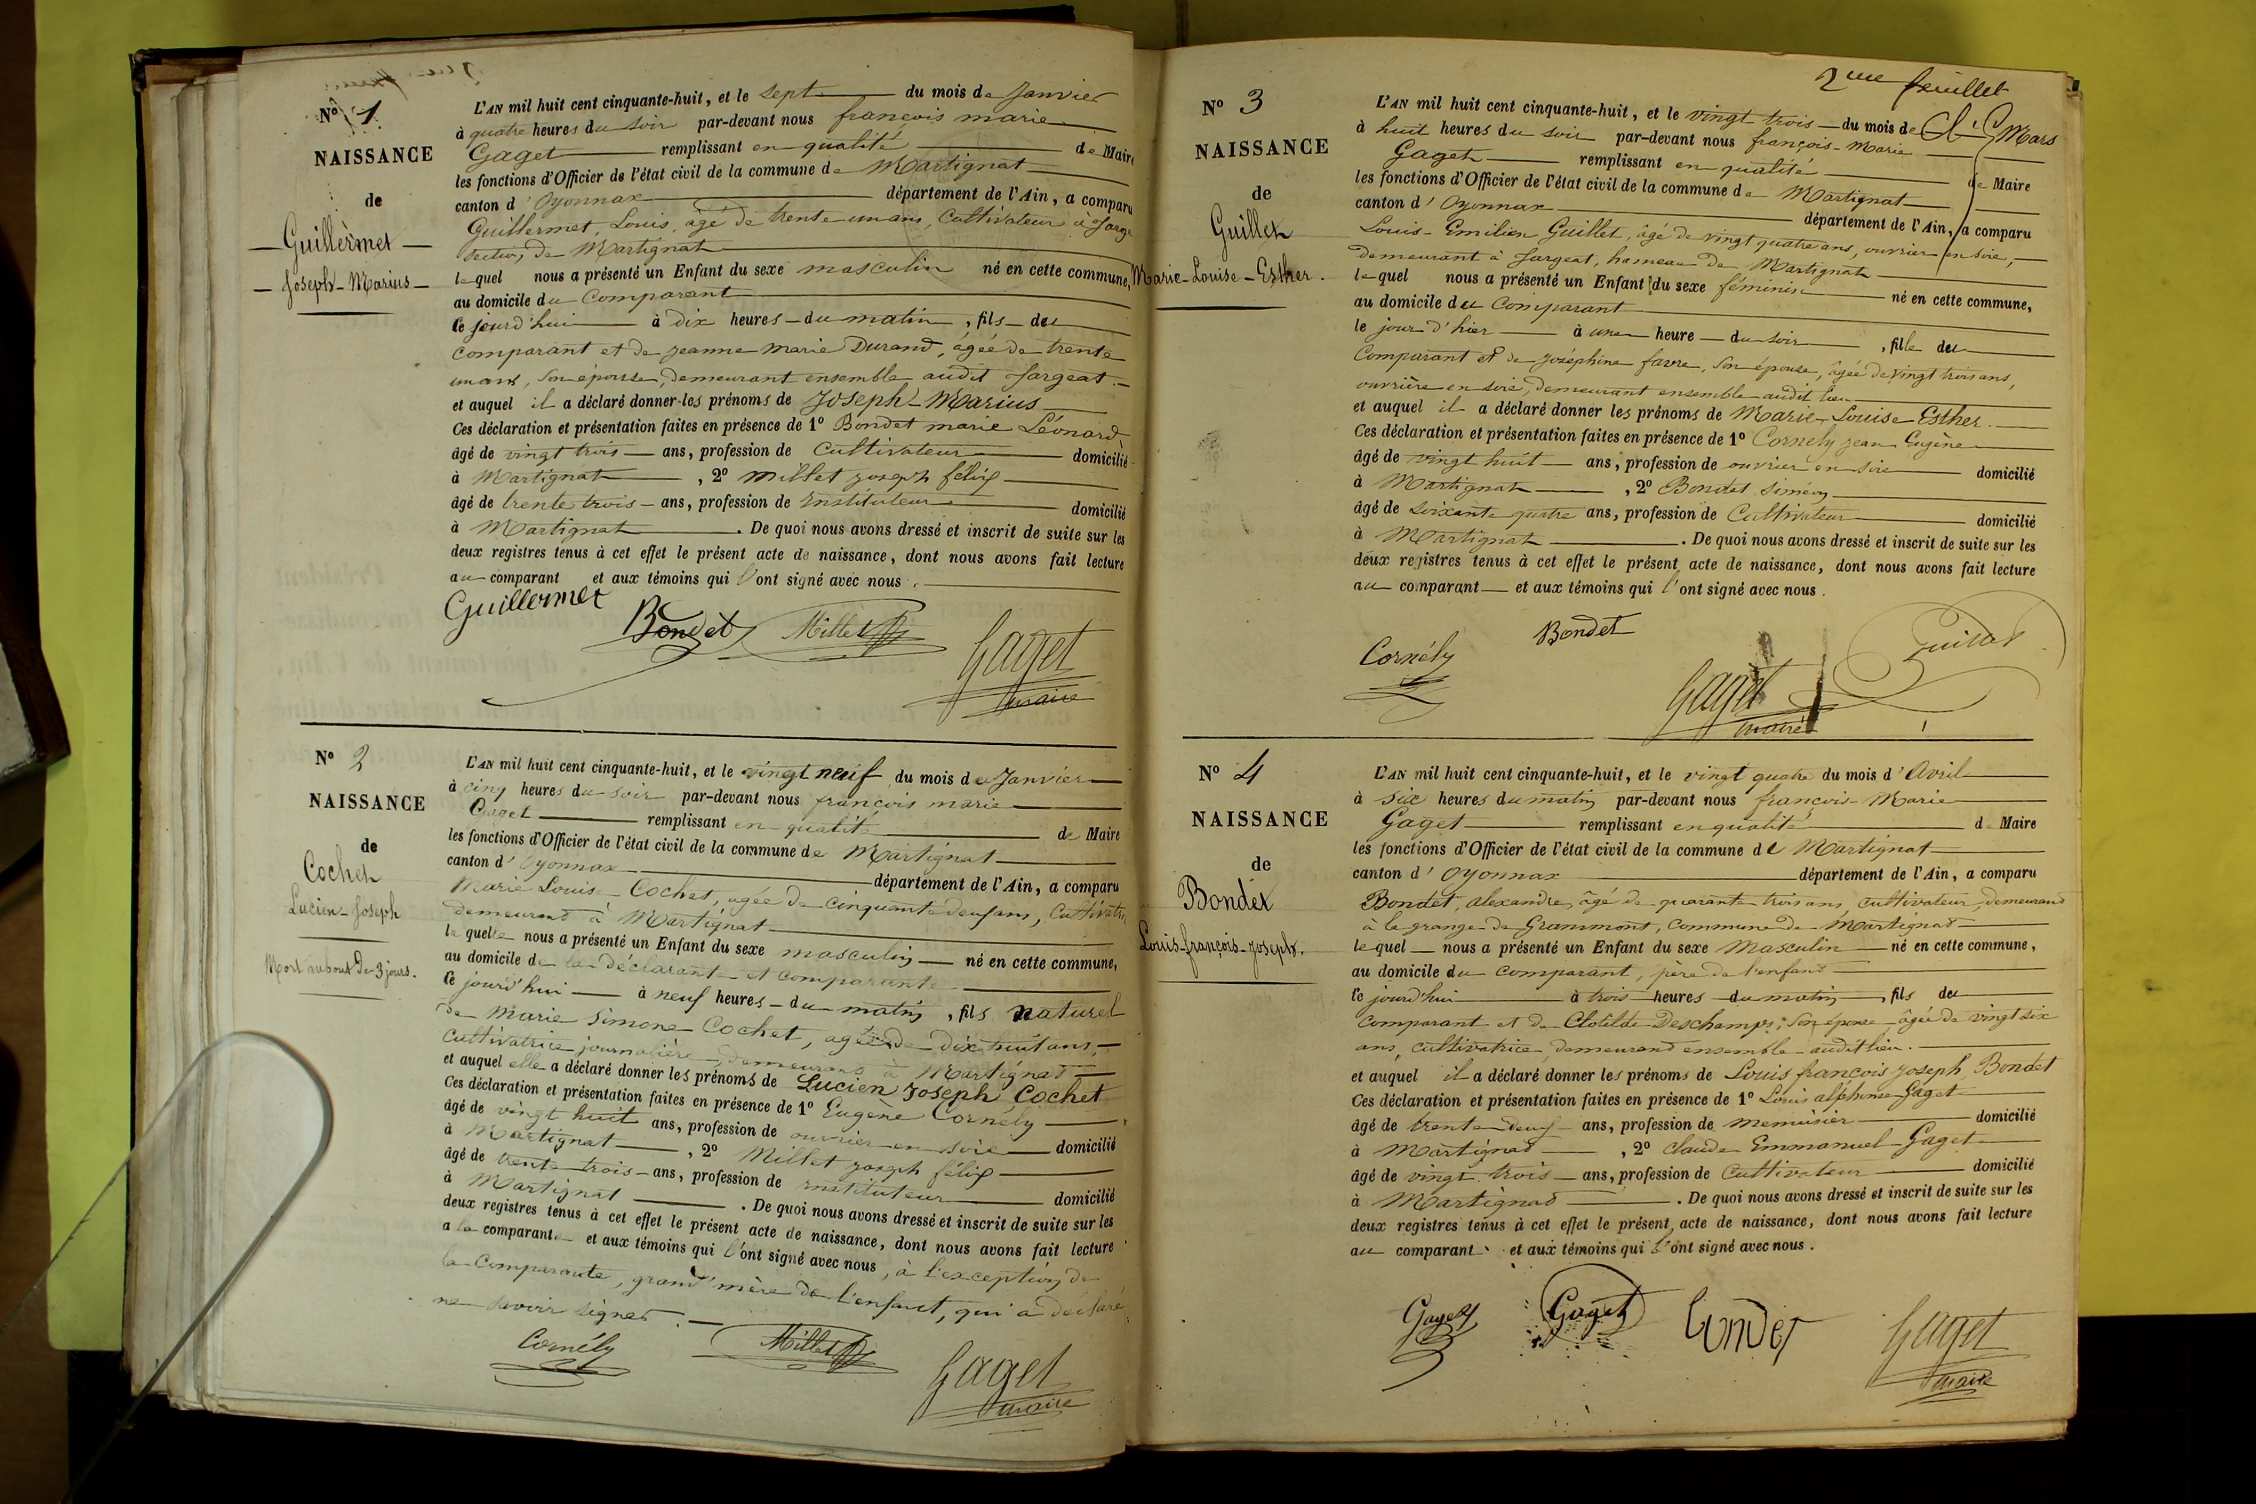 N° 1
NAISSANCE
de
Guillermet
Joseph-Marius
L'AN mil huit cent cinquante-huit, et le sept du mois de Janvier
à quatre heures du soir par-devant nous françois marie
Gaget remplissant en qualité de Maire
les fonctions d'Officier de l'état civil de la commune de Martignat
canton d'Oyonnax département de l'Ain, a comparu
Guillermet, Louis, âgé de trente un ans, Cultivateur à Jarge
section de Martignat
lequel nous a présenté un Enfant du sexe masculin né en cette commune,
au domicile du Comparant
ce jourd'hui à dix heures du matin, fils du
comparant et de jeanne marie Durand, âgée de trente
un ans, son épouse, demeurant ensemble audit Jargeat.
et auquel il a déclaré donner les prénoms de Joseph-Marius
Ces déclaration et présentation faites en présence de 1° Bondet marie Léonard
âgé de vingt trois ans, profession de Cultivateur domicilié
à Martignat, 2° Millet joseph félix
âgé de trente trois ans, profession de Instituteur domicilié
à Martignat. De quoi nous avons dressé et inscrit de suite sur les
deux registres tenus à cet effet le présent acte de naissance, dont nous avons fait lecture
au comparant et aux témoins qui l'ont signé avec nous.
Guillermet Bondet Millet Gaget
maire
N° 2
NAISSANCE
de
Cochet
Lucien-Joseph
Mort au bout de 3 jours.
L'AN mil huit cent cinquante-huit, et le vingt neuf du mois de Janvier
à cinq heures du soir par-devant nous françois marie
Gaget remplissant en qualité de Maire
les fonctions d'Officier de l'état civil de la commune de Martignat
canton d'Oyonnax département de l'Ain, a comparu
Marie Louise Cochet, agée de cinquante deux ans, Cultivatrice
demeurant à Martignat
laquelle nous a présenté un Enfant du sexe masculin né en cette commune,
au domicile de la déclarante et comparante
ce jourd'hui à neuf heures du matin, fils naturel
de Marie Simone Cochet, agée de dix huit ans,
cultivatrice journalière, demeurant à Martignat
et auquel elle a déclaré donner les prénoms de Lucien Joseph Cochet
Ces déclaration et présentation faites en présence de 1° Eugène Cornély
âgé de vingt huit ans, profession de ouvrier en soie domicilié
à Martignat, 2° Millet joseph félix
âgé de trente trois ans, profession de instituteur domicilié
à Martignat. De quoi nous avons dressé et inscrit de suite sur les
deux registres tenus à cet effet le présent acte de naissance, dont nous avons fait lecture
a la comparante et aux témoins qui l'ont signé avec nous, à l'exception de
la Comparante, grand'mère de l'enfant, qui a déclaré
ne savoir signer.
Cornély Millet Gaget
maire
2me feuillet
N° 3
NAISSANCE
de
Guillet
Marie-Louise-Esther.
L'AN mil huit cent cinquante-huit, et le vingt trois du mois de Mars
à huit heures du soir par-devant nous françois-Marie
Gaget remplissant en qualité de Maire
les fonctions d'Officier de l'état civil de la commune de Martignat
canton d'Oyonnax département de l'Ain, a comparu
Louis-Emilien Guillet, âgé de vingt quatre ans, ouvrier en soie,
demeurant à Jargeat, hameau de Martignat
lequel nous a présenté un Enfant du sexe féminin né en cette commune,
au domicile du Comparant
le jour d'hier à une heure du soir, fille du
Comparant et de Joséphine favre, son épouse, âgée de vingt trois ans,
ouvrière en soie, demeurant ensemble audit lieu
et auquel il a déclaré donner les prénoms de Marie-Louise Esther.
Ces déclaration et présentation faites en présence de 1° Cornely jean Eugène
âgé de vingt huit ans, profession de ouvrier en soie domicilié
à Martignat, 2° Bondet siméon
âgé de soixante quatre ans, profession de Cultivateur domicilié
à Martignat. De quoi nous avons dressé et inscrit de suite sur les
deux registres tenus à cet effet le présent acte de naissance, dont nous avons fait lecture
au comparant et aux témoins qui l'ont signé avec nous.
Cornély Bondet Gaget
maire
N° 4
NAISSANCE
de
Bondet
Louis-françois-Joseph.
L'AN mil huit cent cinquante-huit, et le vingt quatre du mois d'Avril
à six heures du matin par-devant nous françois-Marie
Gaget remplissant en qualité de Maire
les fonctions d'Officier de l'état civil de la commune de Martignat
canton d'Oyonnax département de l'Ain, a comparu
Bondet, alexandre, âgé de quarante trois ans, cultivateur, demeurant
à la grange de Grammont, Commune de Martignat
lequel nous a présenté un Enfant du sexe Masculin né en cette commune,
au domicile du comparant, père de l'enfant
ce jourd'hui à trois heures du matin, fils du
comparant et de Clotilde Deschamps, son épouse âgée de vingt six
ans, cultivatrice, demeurant ensemble audit lieu.
et auquel il a déclaré donner les prénoms de Louis françois joseph Bondet
Ces déclaration et présentation faites en présence de 1° Louis alphonse Gaget
âgé de trente deux ans, profession de menuisier domicilié
à Martignat, 2° claude Emmanuel Gaget
âgé de vingt trois ans, profession de Cultivateur domicilié
à Martignat. De quoi nous avons dressé et inscrit de suite sur les
deux registres tenus à cet effet le présent acte de naissance, dont nous avons fait lecture
au comparant et aux témoins qui l'ont signé avec nous.
Gaget Gaget Bondet Gaget
maire